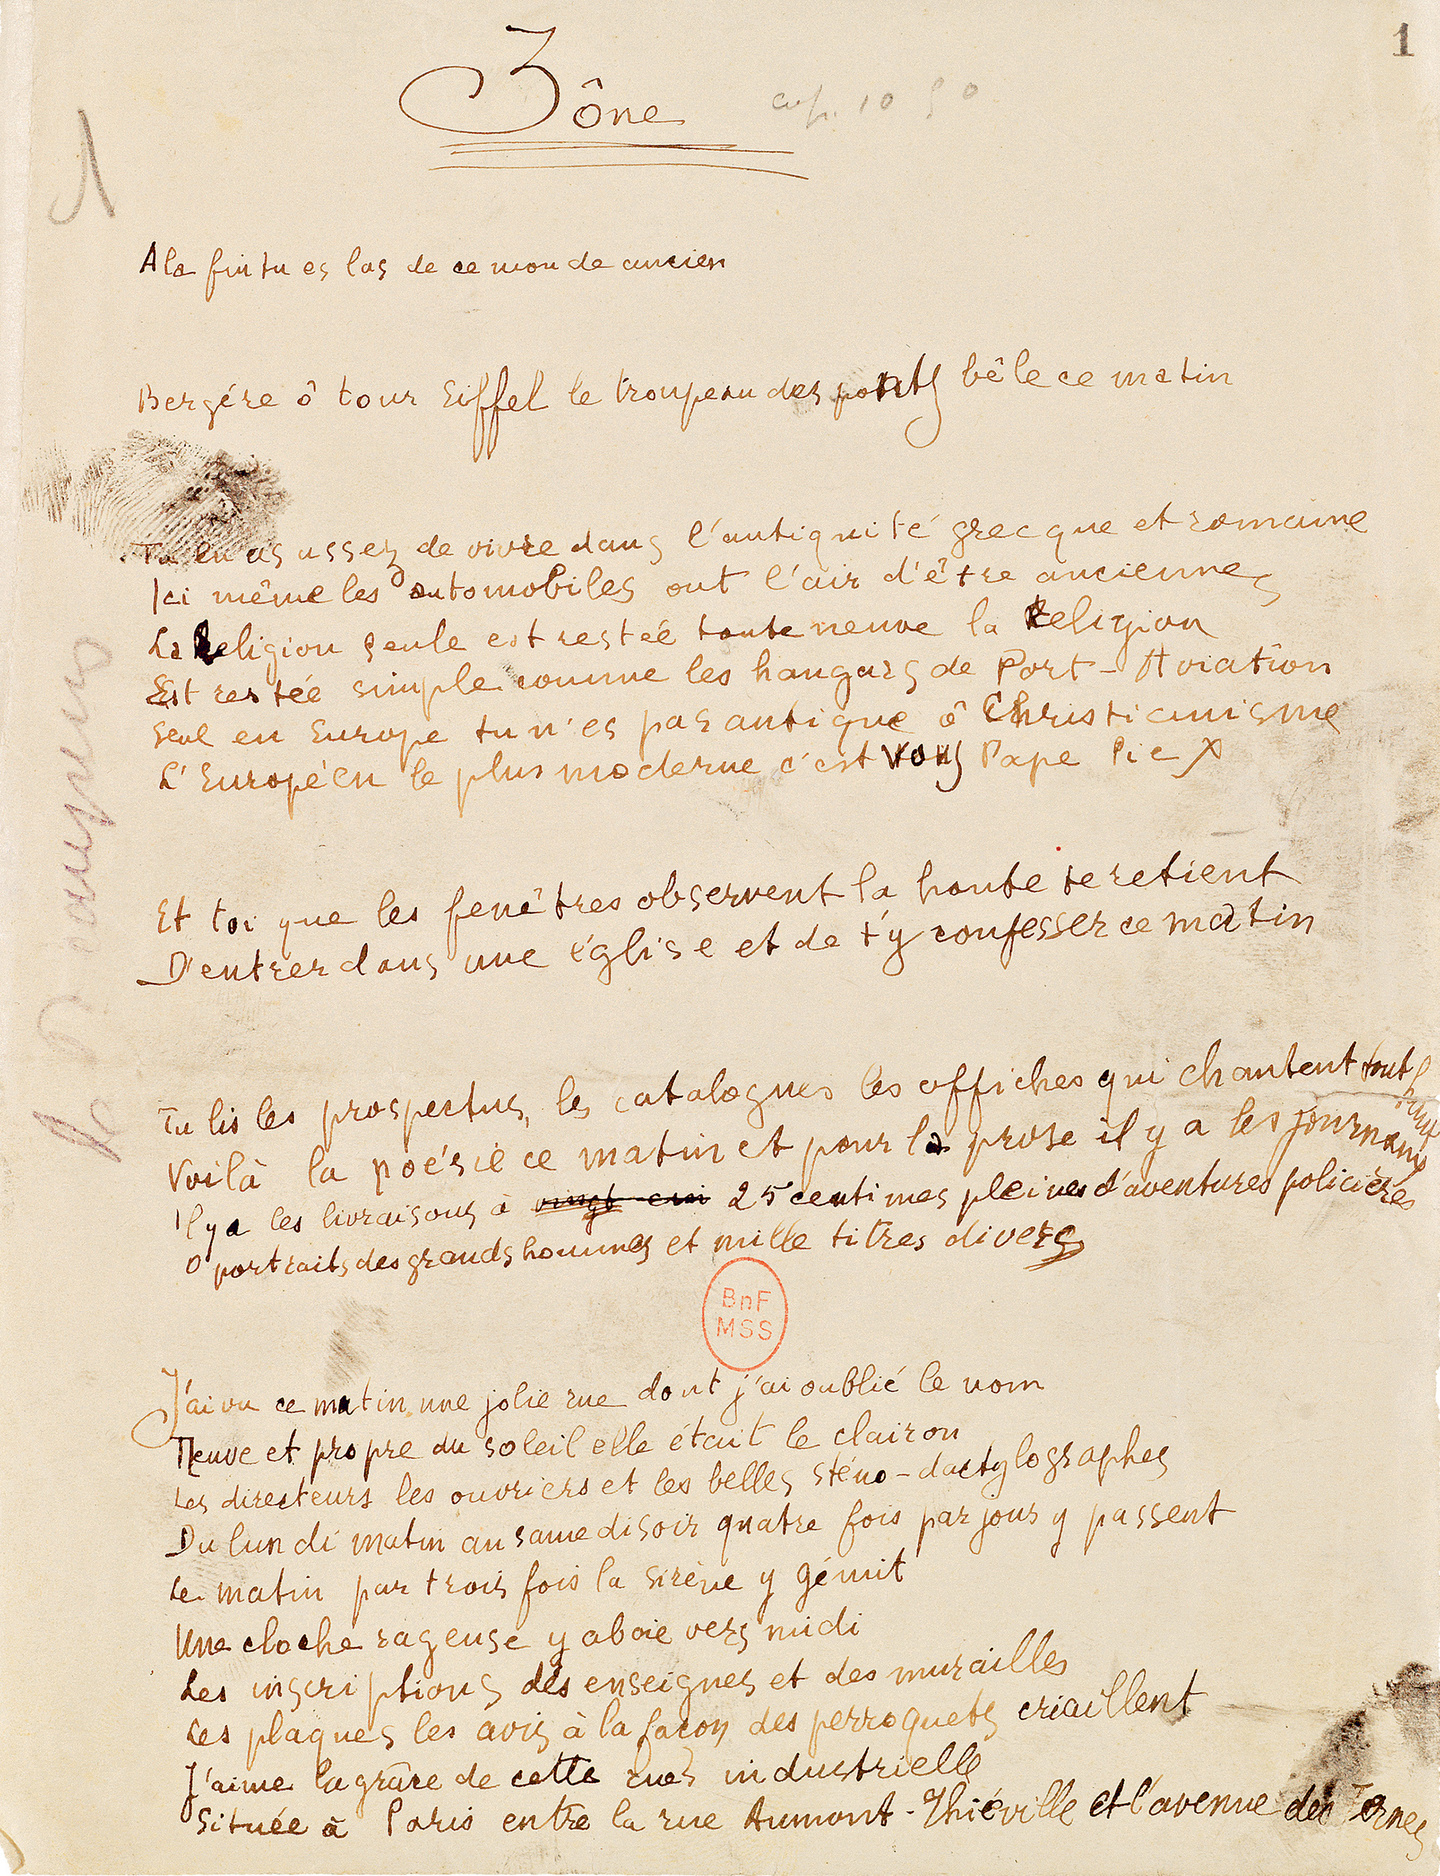 1
Zône
1
A la fin tu es las de ce monde ancien
Bergére ô tour Eiffel le troupeau des ponts bêle ce matin
Tu en as assez de vivre dans l'antiquité grecque et romaine
Ici même les automobiles ont l'air d'être anciennes
La Religion seule est restée toute neuve la Religion
Est restée simple comme les hangars de Port-Aviation
Seul en Europe tu n'es pas antique ô Christianisme
L'Européen le plus moderne c'est vous Pape Pie X
Et toi que les fenêtres observent la honte te retient
D'entrer dans une église et de t'y confesser ce matin
Tu lis les prospectus, les catalogues les affiches qui chantent tout haut
Voilà la poésie ce matin et pour la prose il y a les journaux
Il y a les livraisons à vingt 25 centimes pleines d'aventures policières
O portraits des grands hommes et mille titres divers
BnF
MSS
J'ai vu ce matin une jolie rue dont j'ai oublié le nom
Neuve et propre du soleil elle était le clairon
Les directeurs les ouvriers et les belles sténo-dactylographes
Du lundi matin au samedi soir quatre fois par jour y passent
Le matin par trois fois la sirène y gémit
Une cloche rageuse y aboie vers midi
Les inscriptions des enseignes et des murailles
Les plaques les avis à la façon des perroquets criaillent
J'aime la grâce de cette rue industrielle
Située à Paris entre la rue Aumont-Thiéville et l'avenue des Ternes